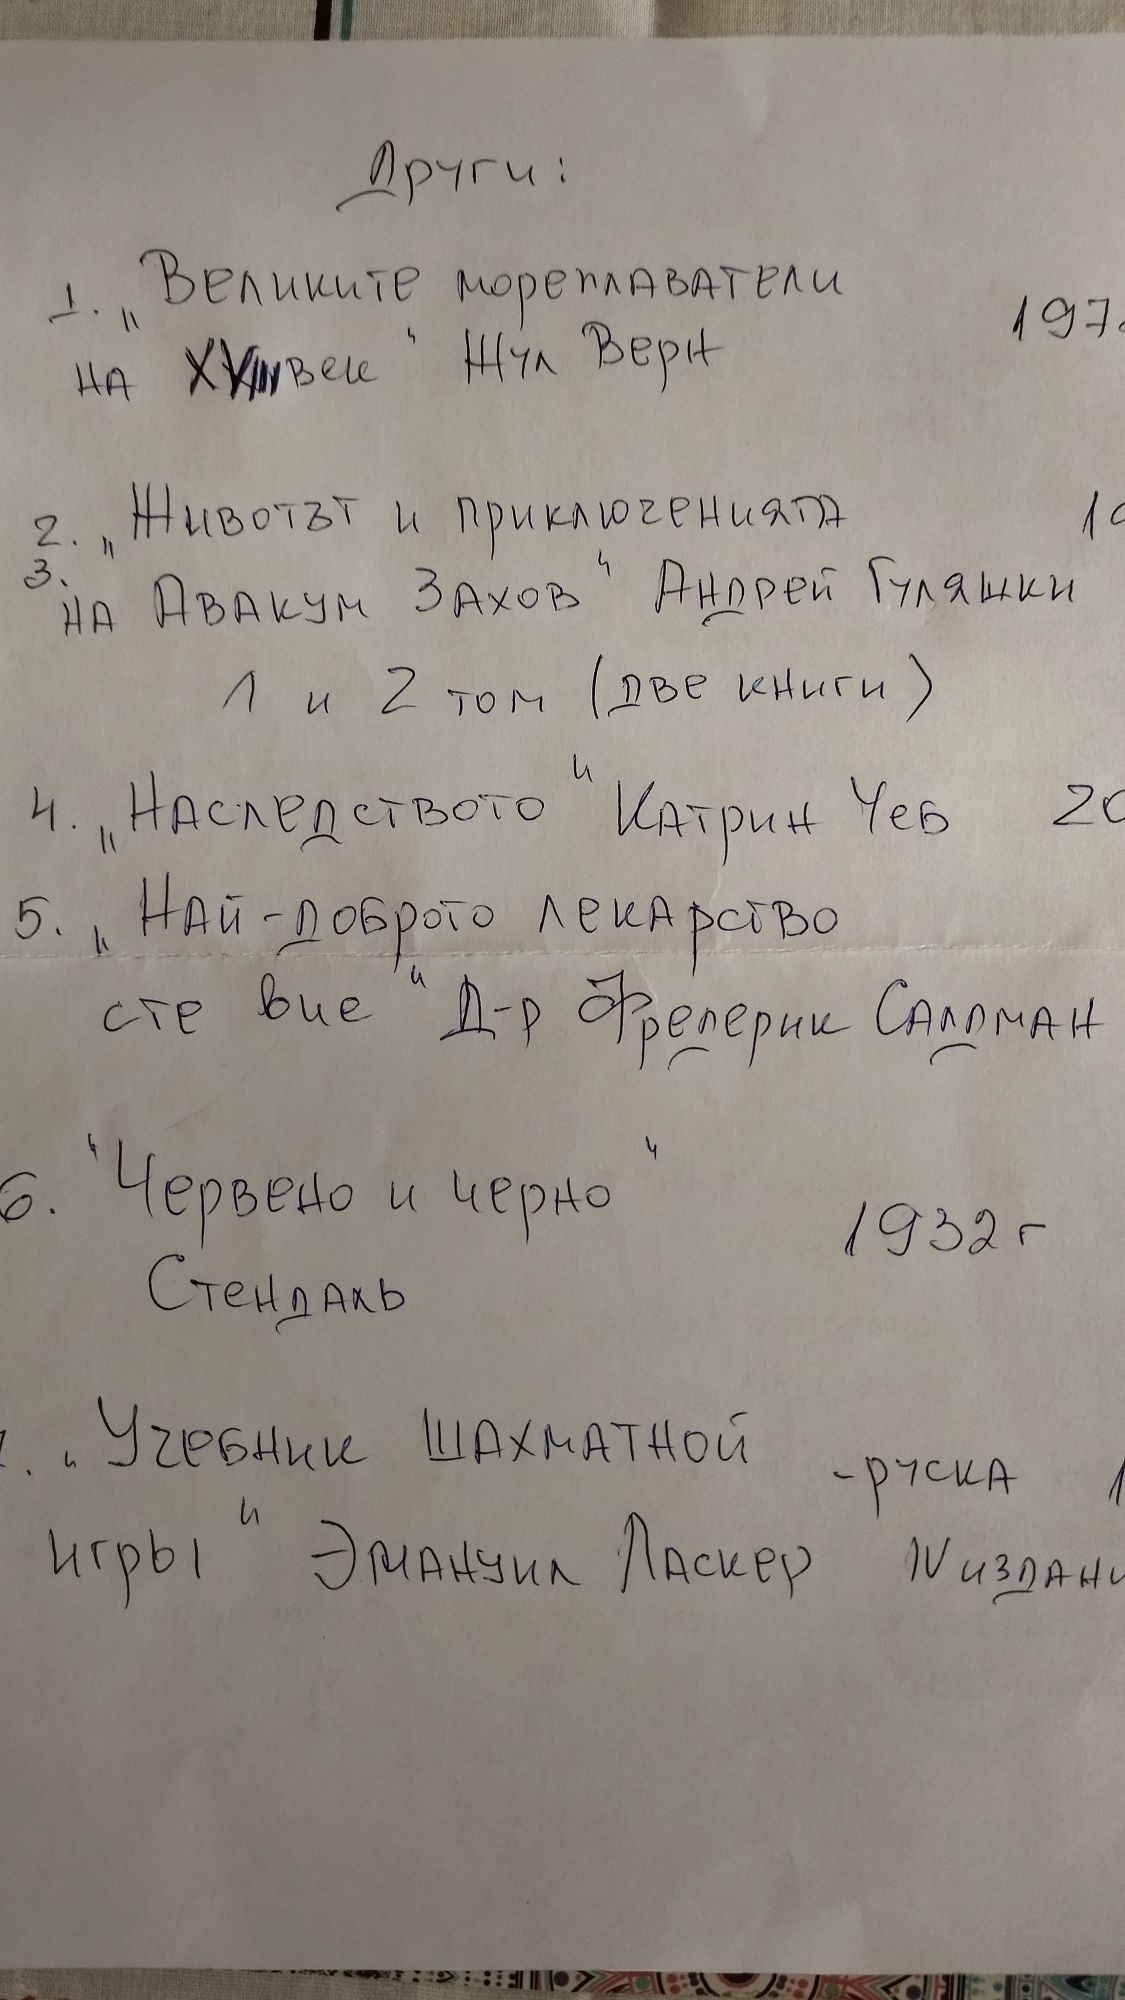 Други:
1. „Великите мореплаватели
197
на XVIII век" Жул Верн
2. „Животът и приключенията
19
3.
на Авакум Захов" Андрей Гуляшки
1 и 2 том (две книги)
4. „Наследството" Катрин Уеб 20
5. „Най-доброто лекарство
сте вие" Д-р Фредерик Салдман
6. "Червено и черно"
1932 г
Стендаль
„Учебник шахматной
-руска 1
игры" Эмануил Ласкер IV издани